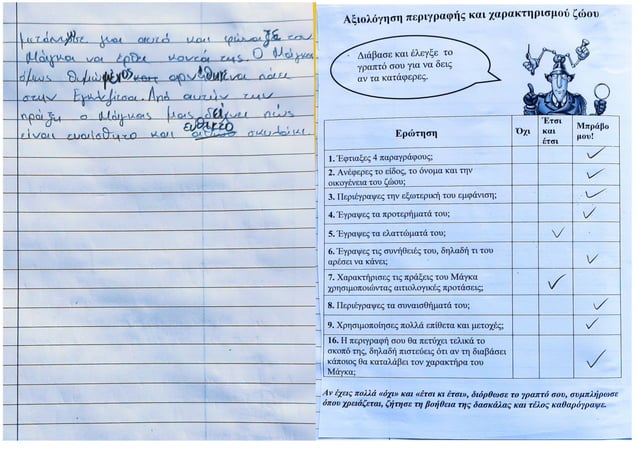 για αυτό και φώναξε τον
Μάγκα να έρθει κοντά της. Ο Μάγκας
όμως θυμωμένος αρνήθηκε να πάει
στην Εγγλέζα. Από αυτήν την
πράξη ο Μάγκας μας δείχνει πώς
είναι ευαίσθητο και εύθικτο σκυλάκι.
Αξιολόγηση περιγραφής και χαρακτηρισμού ζώου
Διάβασε και έλεγξε το
γραπτό σου για να δεις
αν τα κατάφερες.
Ερώτηση
Όχι
Έτσι
και
έτσι
Μπράβο
μου!
1. Έφτιαξες 4 παραγράφους;
2. Ανέφερες το είδος, το όνομα και την
οικογένεια του ζώου;
3. Περιέγραψες την εξωτερική του εμφάνιση;
4. Έγραψες τα προτερήματά του;
5. Έγραψες τα ελαττώματά του;
6. Έγραψες τις συνήθειές του, δηλαδή τι του
αρέσει να κάνει;
7. Χαρακτήρισες τις πράξεις του Μάγκα
χρησιμοποιώντας αιτιολογικές προτάσεις;
8. Περιέγραψες τα συναισθήματά του;
9. Χρησιμοποίησες πολλά επίθετα και μετοχές;
16. Η περιγραφή σου θα πετύχει τελικά το
σκοπό της, δηλαδή πιστεύεις ότι αν τη διαβάσει
κάποιος θα καταλάβει τον χαρακτήρα του
Μάγκα;
Αν έχεις πολλά «όχι» και «έτσι κι έτσι», διόρθωσε το γραπτό σου, συμπλήρωσε
όπου χρειάζεται, ζήτησε τη βοήθεια της δασκάλας και τέλος καθαρόγραψε.